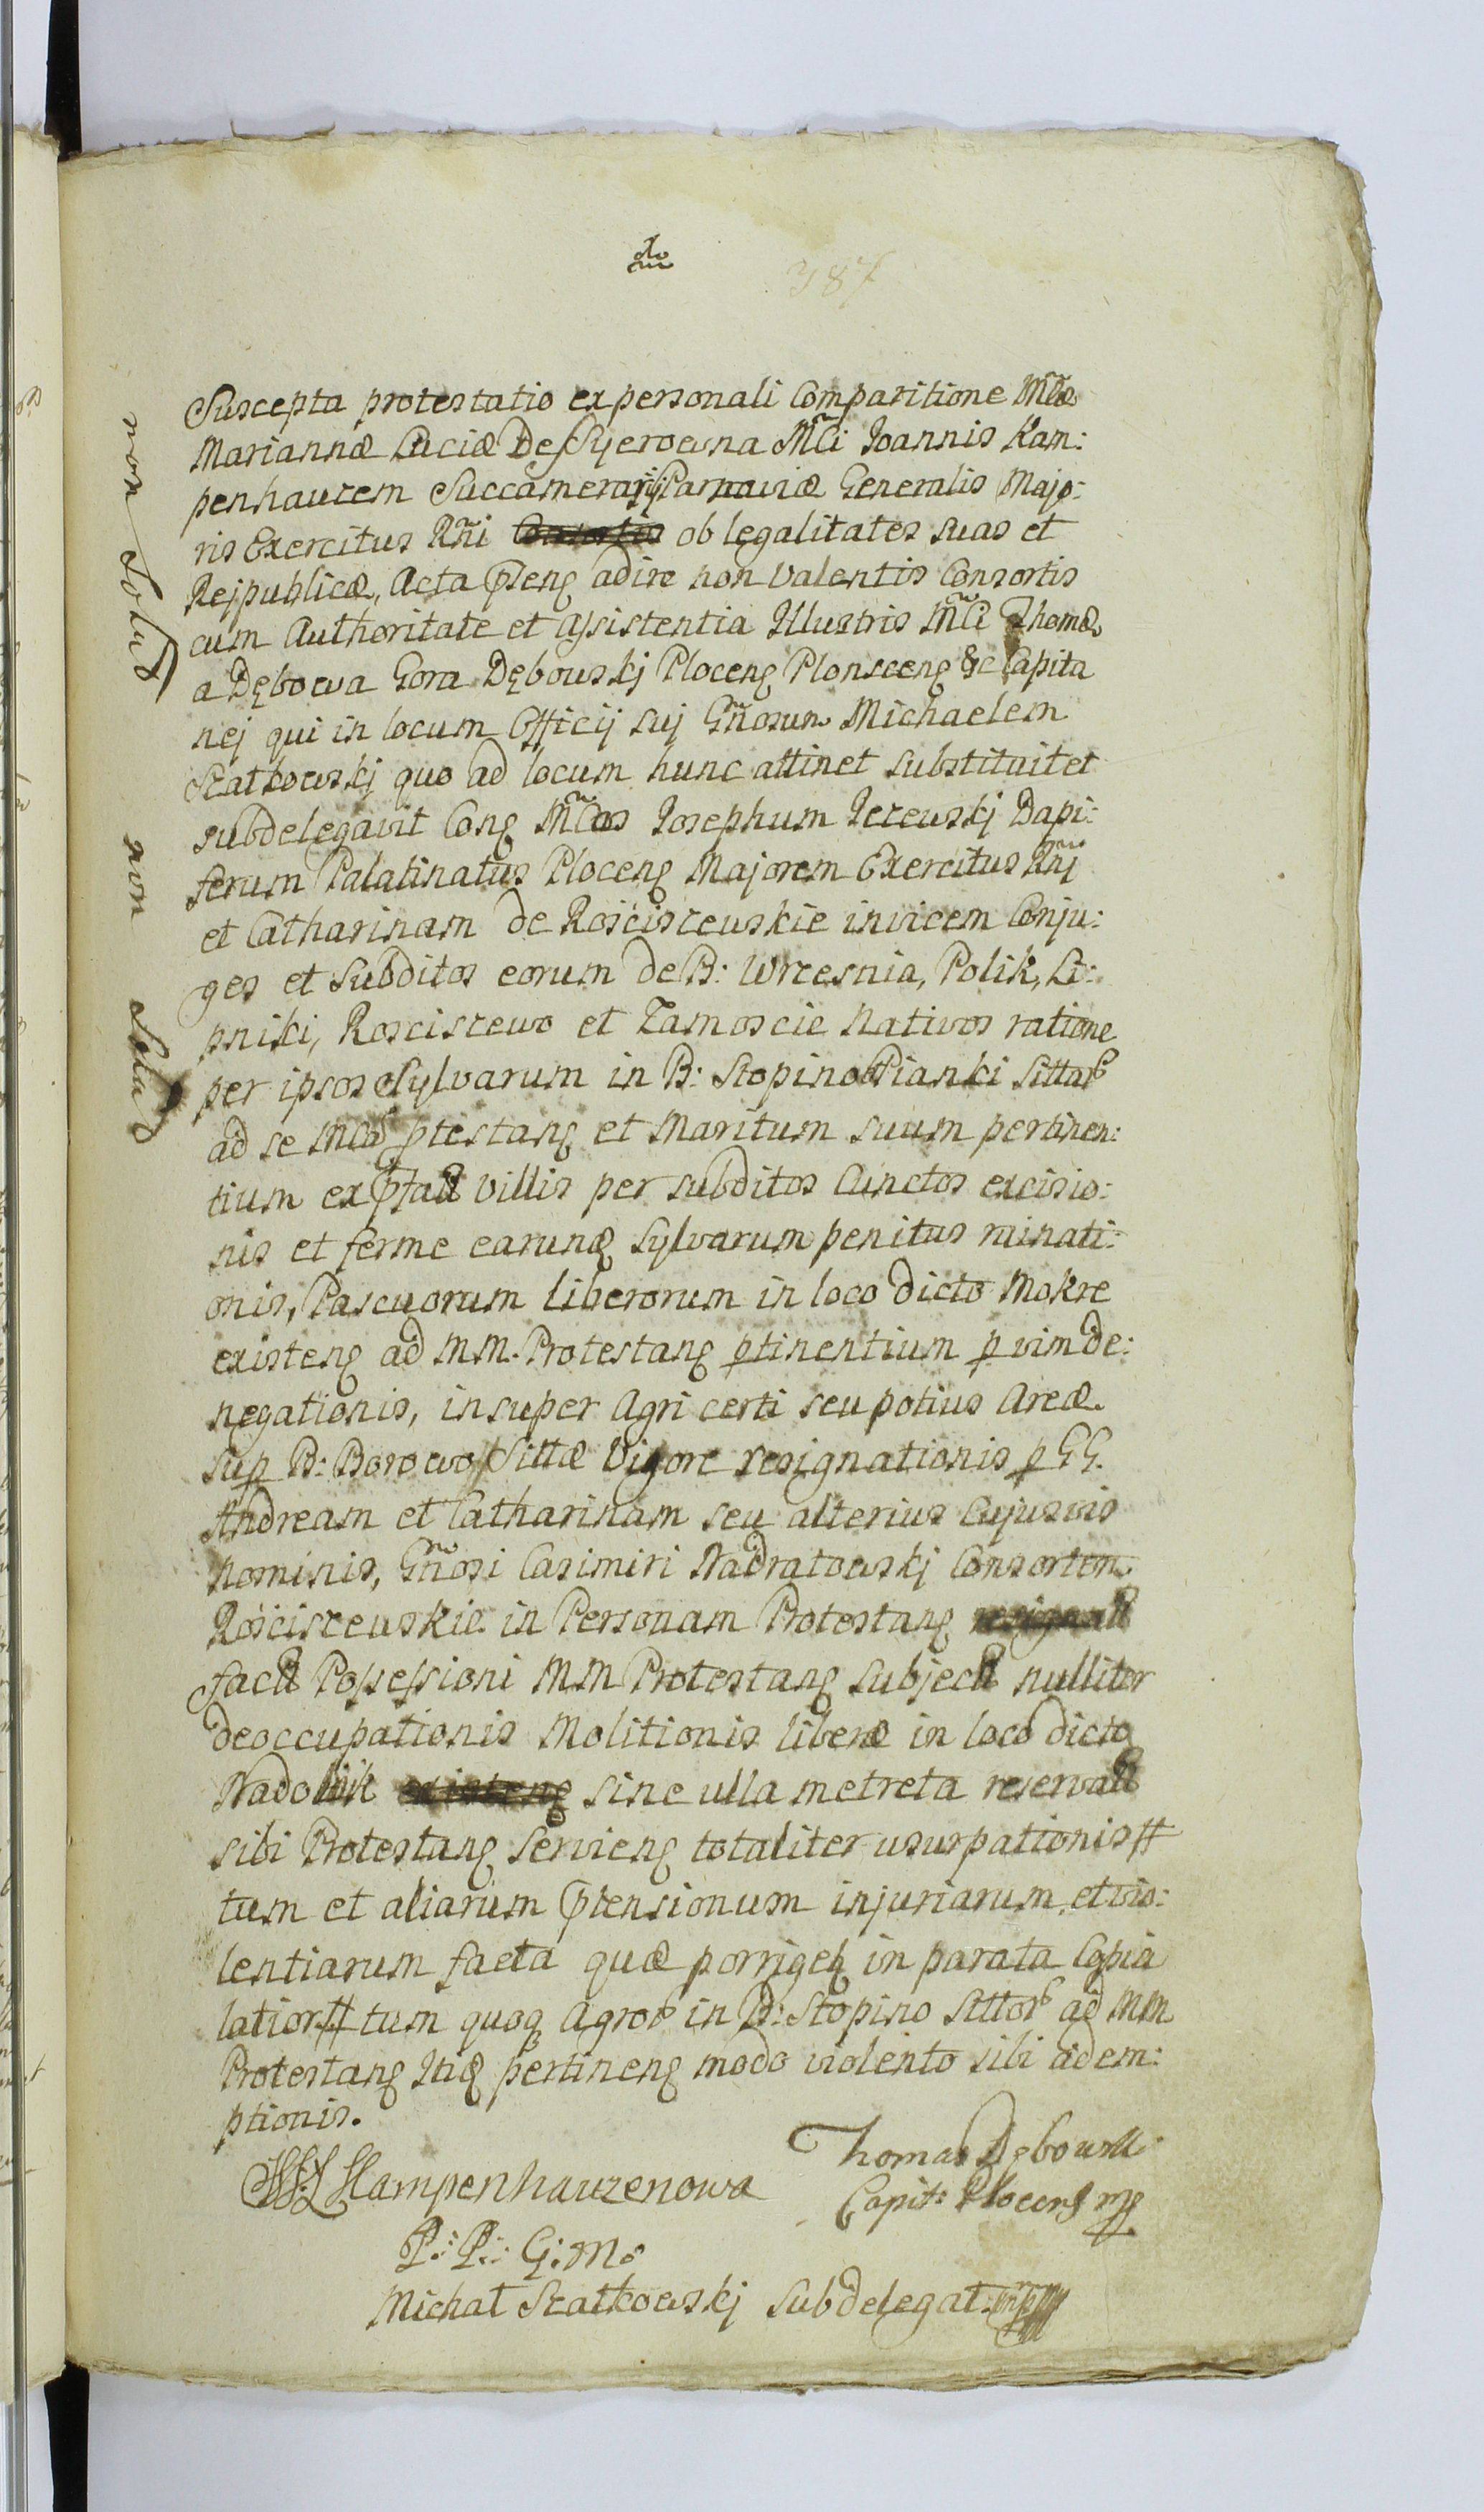 387
Suscepta protestatio ex personali Comparitione Mcæ
Mariannæ Luciæ De Syerowna Mci Joannis Kam:
penhauzem Succamerarij Parnaviæ Generalis Majo:
ris Exercitus Rni ob legalitates suas et
Rejpublicæ, Acta pteng adire non valentis Consortis
cum Authoritate et assistentia Illustris Mci Thomæ
a Dębowa Gora Dębowskj Ploceng Plonsceng &c Capita
nej qui in locum Officij suj Gnosum Michaelem
Szatkowskj quo ad locum hunc attinet substituit et
subdelegavit Cong Mcos Josephum Jezewskj Dapi:
ferum Palatinatus Ploceng Majorem Exercitus Rnj
et Catharinam de Rościszewskie invicem Conju:
ges et Subditos eorum de B: Wrzesnia, Polik, Li:
pniki, Rosciszewo et Zamoscie Nativos ratione
per ipsos Sylvarum in B: Stopino Pianki sittar
ad se Mcos ptestang et Maritum suum pertinen:
tium ex ptatt villis per subditos Cunctos excisio:
nis et ferme earund Sylvarum penitus ruinati:
onis, Pascuorum liberorum in loco dicto Mokre
existeng ad MM. Protestang ptinentium p vim de:
negationis, insuper Agri certi seu potius Areæ
sup B: Borowo Sittæ Vigore resignationis p GG.
Andream et Catharinam seu alterius Cujusvis
nominis, Gnosi Casimiri Nadratowskj Consortem
Rościszewskie in Personam Protestang
factt Possessioni MM Protestang subjectt nulliter
deoccupationis Molitionis liberæ in loco dicto
Nadolnik sine ulla metreta reservatt
sibi Protestang servieng totaliter usurpationis #
tum et aliarum ptensionum injuriarum et vio:
lentiarum facta quæ porriget in parata Copia
latior # tum quoq Agror in B: Stopino sittor ad MM
Protestang Itid pertineng modo violento sibi adem:
ptionis.
Thomas Dębowski
Kampenhauzenowa
Capit: Plocens mp
P: P: G: M:
Michał Szatkowskj Subdelegat: mp
non Solus
non Solus